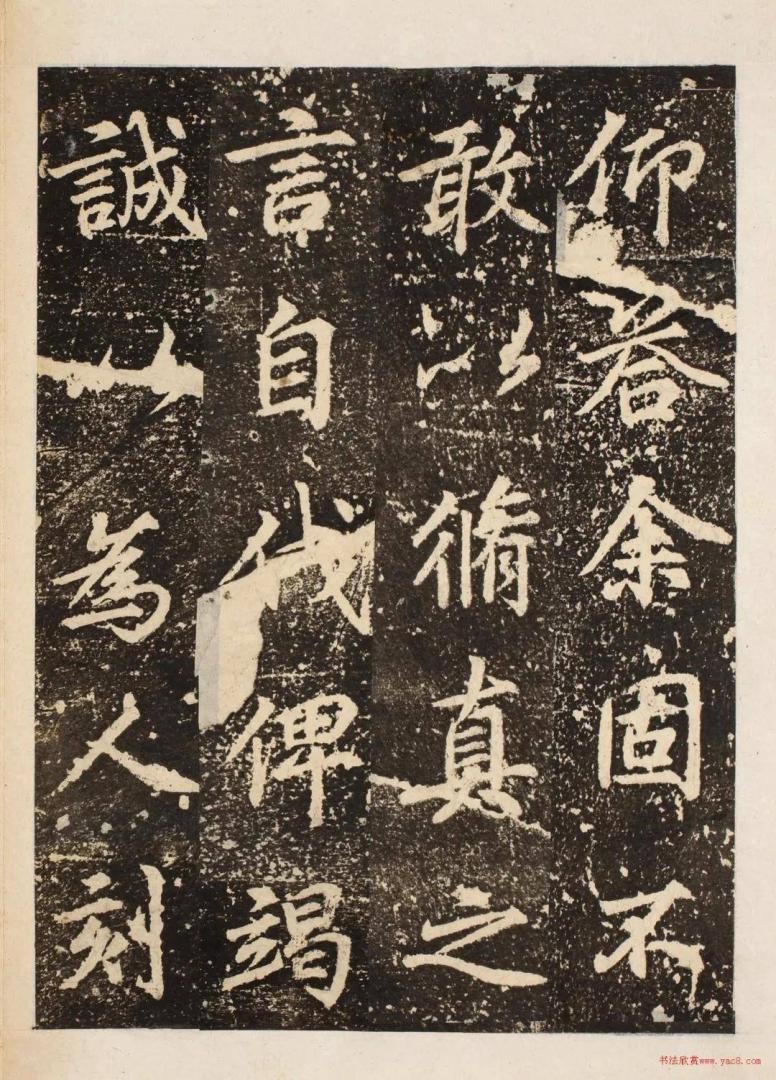 仰荅余固不
敢以脩真之
言自伐俾竭
誠以為人刻
书法欣赏www.yac8.com